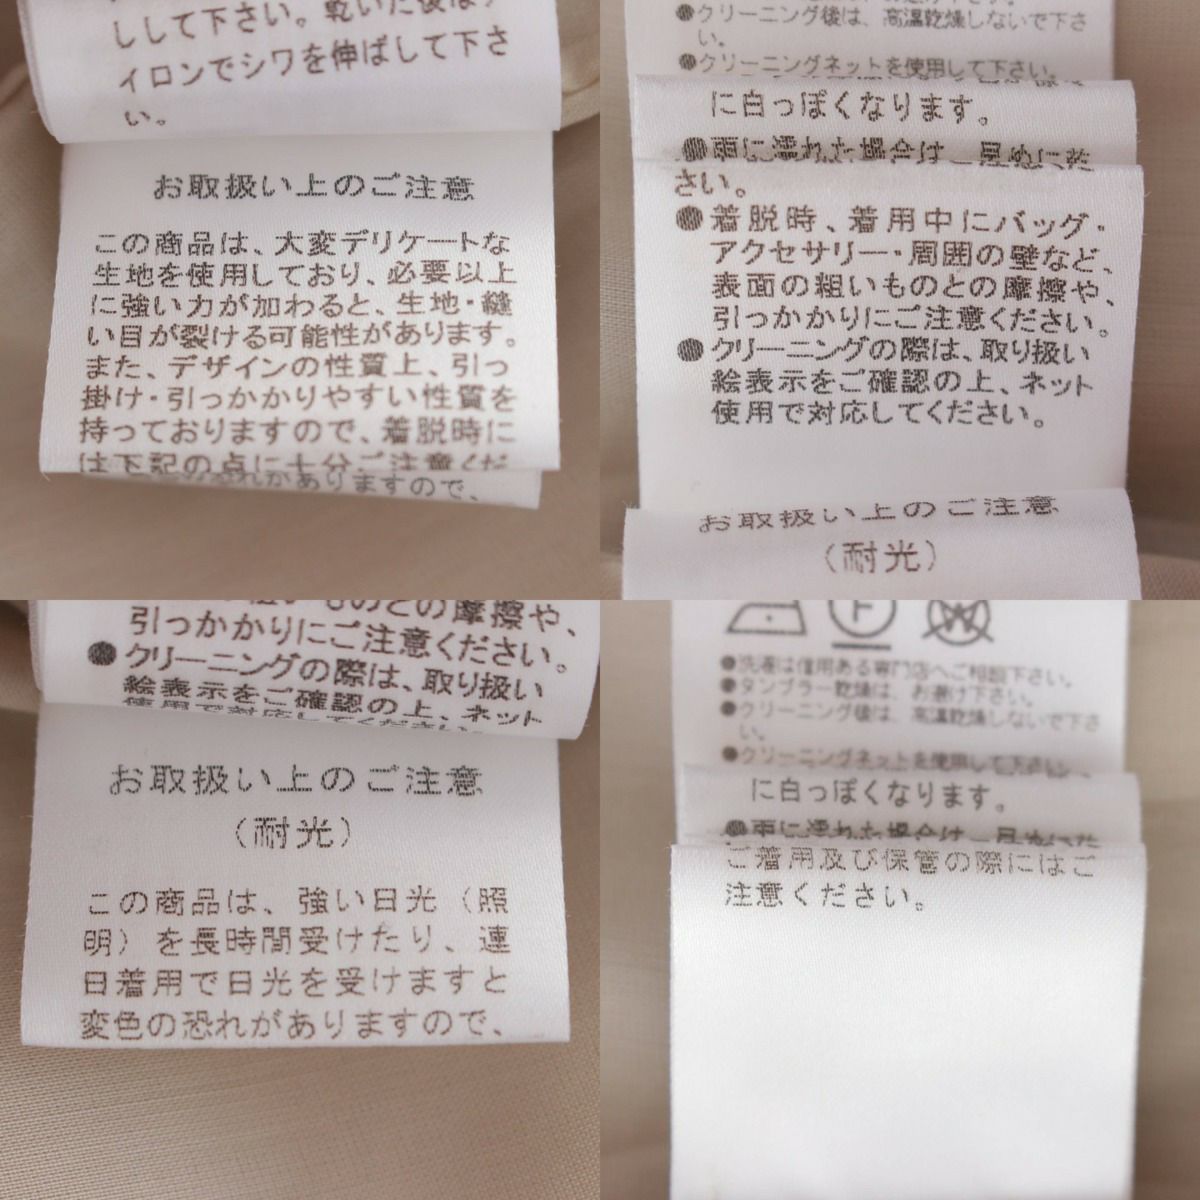 しして下さい。乾いた後は
イロンでシワを伸ばして下さ
い。
お取扱い上のご注意
この商品は、大変デリケートな
生地を使用しており、必要以上
に強い力が加わると、生地・縫
い目が裂ける可能性があります。
また、デザインの性質上、引っ
掛け・引っかかりやすい性質を
持っておりますので、着脱時に
は下記の点に十分ご注意くだ
恐れがありますので、
●クリーニング後は、高温乾燥しないで下さ
い。
●クリーニングネットを使用して下さい。
に白っぽくなります。
●雨に濡れた場合は、早めに乾
さい。
●着脱時、着用中にバッグ・
アクセサリー・周囲の壁など、
表面の粗いものとの摩擦や、
引っかかりにご注意ください。
●クリーニングの際は、取り扱い
絵表示をご確認の上、ネット
使用で対応してください。
お取扱い上のご注意
(耐光)
ものとの摩擦や、
引っかかりにご注意ください。
●クリーニングの際は、取り扱い
絵表示をご確認の上、ネット
使用で対応してください。
お取扱い上のご注意
(耐光)
この商品は、強い日光(照
明)を長時間受けたり、連
日着用で日光を受けますと
変色の恐れがありますので、
F W
●洗濯は信用ある専門店へご相談下さい。
●タンブラー乾燥は、お避け下さい。
●クリーニング後は、高温乾燥しないで下さ
い。
●クリーニングネットを使用して下さい。
に白っぽくなります。
●雨に濡れた場合は、早めに乾
ご着用及び保管の際にはご
注意ください。